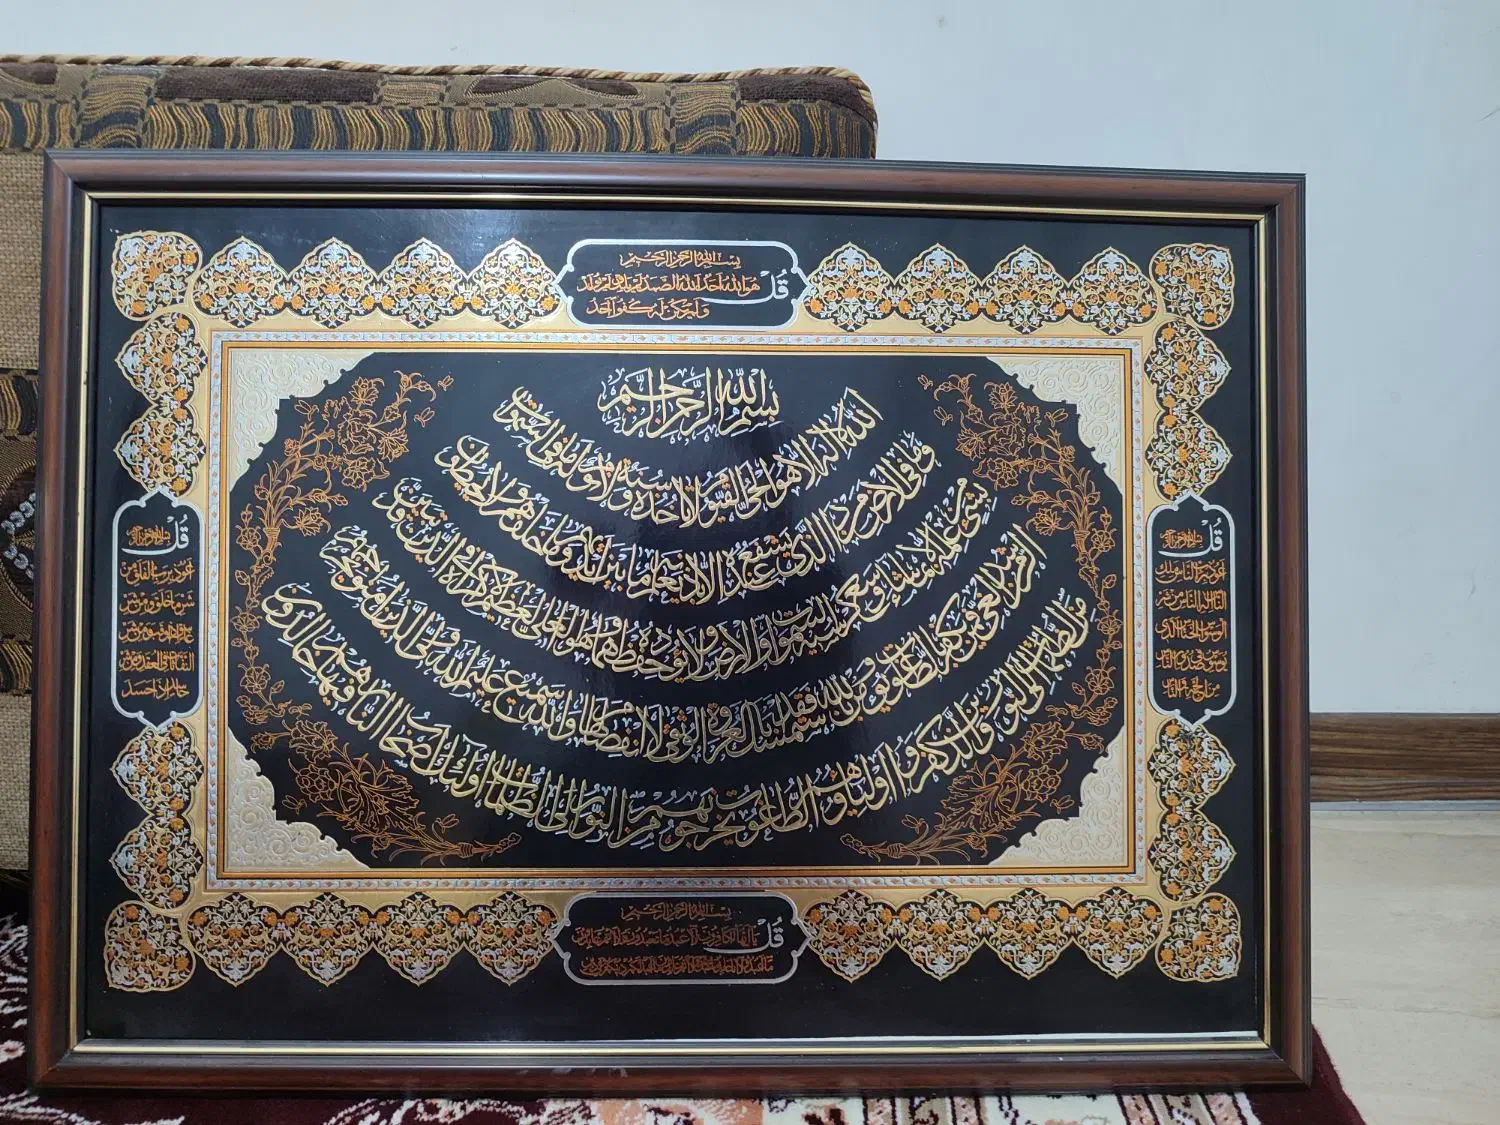 بسم الله الرحمن الرحيم
قل هو الله احد الله الصمد لم يلد ولم يولد
ولم يكن له كفوا احد
بسم الله الرحمن الرحيم
الله لا اله الا هو الحي القيوم لا تاخذه سنة ولا نوم له ما في السموات
وما في الارض من ذا الذي يشفع عنده الا باذنه يعلم ما بين ايديهم وما خلفهم ولا يحيطون
بشيء من علمه الا بما شاء وسع كرسيه السموات والارض ولا يؤده حفظهما وهو العلي العظيم لا اكراه في الدين قد تبين
الرشد من الغي فمن يكفر بالطاغوت ويؤمن بالله فقد استمسك بالعروة الوثقى لا انفصام لها والله سميع عليم الله ولي الذين امنوا يخرجهم
من الظلمات الى النور والذين كفروا اولياؤهم الطاغوت يخرجونهم من النور الى الظلمات اولئك اصحاب النار هم فيها خالدون
بسم الله الرحمن الرحيم
قل اعوذ برب الناس ملك
الناس اله الناس من شر
الوسواس الخناس الذي
يوسوس في صدور الناس
من الجنة والناس
بسم الله الرحمن الرحيم
قل اعوذ برب الفلق من
شر ما خلق ومن شر
غاسق اذا وقب ومن شر
النفاثات في العقد ومن شر
حاسد اذا حسد
بسم الله الرحمن الرحيم
قل يا ايها الكافرون لا اعبد ما تعبدون ولا انتم عابدون
ما اعبد ولا انا عابد ما عبدتم ولا انتم عابدون ما اعبد لكم دينكم ولي دين